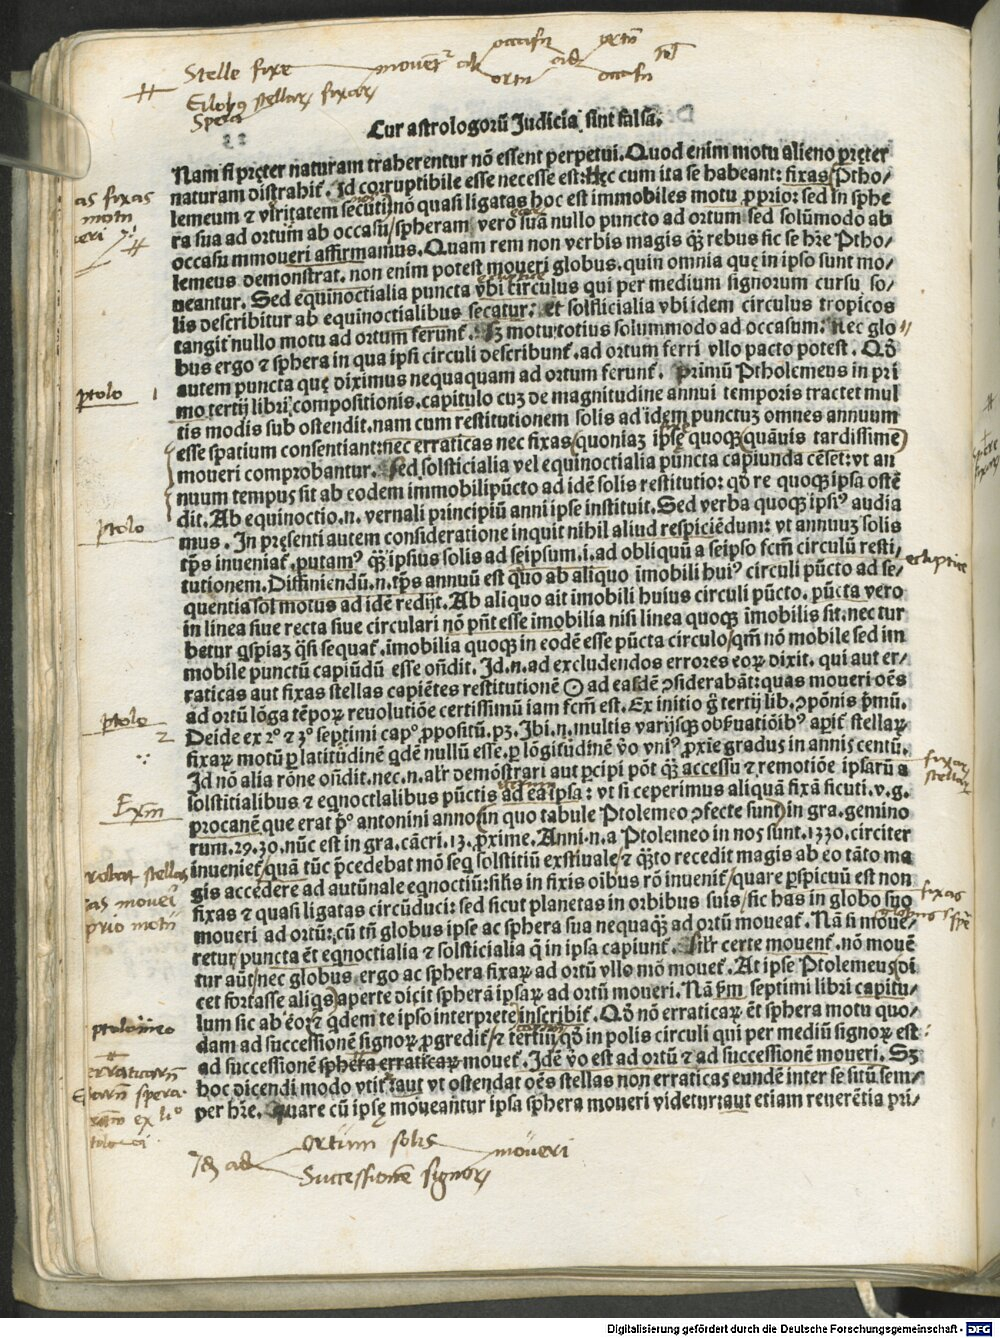 Stelle fixe
Cur astrologorū Judicia sint falsa.
Nam si pręter naturam traherentur nō essent perpetui. Quod enim motu alieno pręter
naturam distrahit̄. Id corruptibile esse necesse est: Hęc cum ita se habeant: fixas/Ptho/
lemeum ⁊ v̄iritatem secuti/nō quasi ligatas hoc est immobiles motu ꝓprio: sed in sphe
ra sua ad ortum ab occasu/spheram vero suā nullo puncto ad ortum sed solūmodo ab
occasu mmoueri affirmamus. Quam rem non verbis magis qꝫ̄ rebus sic se hr̄e Ptho/
lemeus demonstrat. non enim potest moueri globus. quin omnia quę in ipso sunt mo/
ueantur. Sed equinoctialia puncta vbi circulus qui per medium signorum cursu so/
lis describitur ab equinoctialibus secatur: et solsticialia vbi idem circulus tropicos
tangit nullo motu ad ortum ferunt̄. Sꝫ motu totius solummodo ad occasum: Nec glo
bus ergo ⁊ sphera in qua ipsi circuli describunt̄. ad ortum ferri vllo pacto potest. Qđ
autem puncta quę diximus nequaquam ad ortum ferunt̄. Primū Ptholemeus in pri
mo tertij libri compositionis. capitulo cuꝫ de magnitudine annui temporis tractet mul
tis modis sub ostendit. nam cum restitutionem solis ad idem punctuꝫ omnes annuum
esse spatium consentiant: nec erraticas nec fixas (quoniaꝫ ipsę quoqꝫ quāuis tardissime)
moueri comprobantur. Sed solsticialia vel equinoctialia pūncta capiunda cēset: vt an
nuum tempus sit ab eodem immobili pūcto ad idē solis restitutio: qđ re quoqꝫ ipsa ostē
dit. Ab equinoctio .n. vernali principiū anni ipse instituit. Sed verba quoqꝫ ipsiꝰ audia
mus. In pręsenti autem consideratione inquit nihil aliud respiciēdum: vt annuuꝫ solis
tp̄s inueniat̄. putamꝰ qꝫ̄ ipsius solis ad seipsum .i. ad obliquū a seipso fcm̄ circulū resti/
tutionem. Diffiniendū .n. tp̄s annuū est quo ab aliquo īmobili huiꝰ circuli pūcto ad se/
quentia sol motus ad idē redijt. Ab aliquo ait imobili huius circuli pūcto. pūcta vero
in linea siue recta siue circulari nō pn̄t esse īmobilia nisi linea quoqꝫ īmobilis sit. nec tur
betur qspiaꝫ q̄si sequat̄. īmobilia quoqꝫ in eodē esse pūcta circulo/qm̄ nō mobile sed im
mobile punctū capiūdū esse on̄dit. Id .n. ad excludendos errores eoꝝ dixit. qui aut er/
raticas aut fixas stellas capiētes restitutionē ☉ ad easdē ↄsiderabāt: quas moueri oēs
ad ortū lōga tēpoꝝ reuolutiōe certissimū iam fcm̄ est. Ex initio ḡ tertij lib. ↄpōnis p̄mū.
Deide ex 2º ⁊ 3º septimi capº ꝓpositū. pꝫ. Ibi .n. multis varijsqꝫ obẜuatiōibꝰ aꝑit̄ stellaꝝ
fixaꝝ motū ꝑ latitudinē qdē nullū esse. ꝑ lōgitudinē v̄o vniꝰ ꝓxie gradus in annis centū.
Id nō alia rōne on̄dit. nec .n. alr̄ demōstrari aut ꝑcipi pōt qꝫ̄ accessu ⁊ remotiōe ipsarū a
solstitialibus ⁊ eqnoctialibus pūctis ad ea ipsa: vt si ceperimus aliquā fixā sicuti. v.g.
procanē que erat p̄º antonini anno (in quo tabule Ptolemeo ↄfecte sunt) in gra. gemino
rum. 29.30. nūc est in gra. cācri. 13. ꝓxime. Anni .n. a Ptolemeo in nos sunt. 1330. circiter
inueniet̄/quā tūc p̄cedebat mō seq̄ solstitiū exstiuale/⁊ q̄to recedit magis ab eo tāto ma
gis accedere ad autūnale eqnoctiū: silis in fixis oibus rō inuenit̄/quare ꝑspicuū est non
fixas ⁊ quasi ligatas circūduci: sed sicut planetas in orbibus suis/sic has in globo suo
moueri ad ortū: cū tn̄ globus ipse ac sphera sua nequaqꝫ̄ ad ortū moueat̄. Nā si moue/
retur puncta ēt eqnoctialia ⁊ solsticialia q̄ in ipsa capiunt̄. Silr̄ certe mouent̄. nō mouē
tur aūt/nec globus ergo ac sphera fixaꝝ ad ortū vllo mō mouet̄. At ipse Ptolemeus/di
cet fortasse aliqs/aperte dicit spherā ipsaꝝ ad ortū moueri. Nā p̄m septimi libri capitu/
lum sic ab eo ꝙdem te ipso interprete inscribit̄. Qđ nō erraticaꝝ ēt sphera motu quo/
dam ad successionē signoꝝ ꝓgredit̄/⁊ tertiū/qđ in polis circuli qui per mediū signoꝝ est
ad successionē sphera erraticaꝝ mouet̄. Idē v̄o est ad ortū ⁊ ad successionē moueri. Sꝫ
hoc dicendi modo vtit̄/aut vt ostendat oēs stellas non erraticas eundē inter se sitū sem/
per hr̄e. Quare cū ipsę moueantur ipsa sphera moueri videtur: aut etiam reuerētia pri/
ptolo
ptolo
ptolo
2
Exm̄
ptolomeo
ortum solis
Id ad
moueri
Successionē signoꝝ
Digitalisierung gefördert durch die Deutsche Forschungsgemeinschaft - DFG